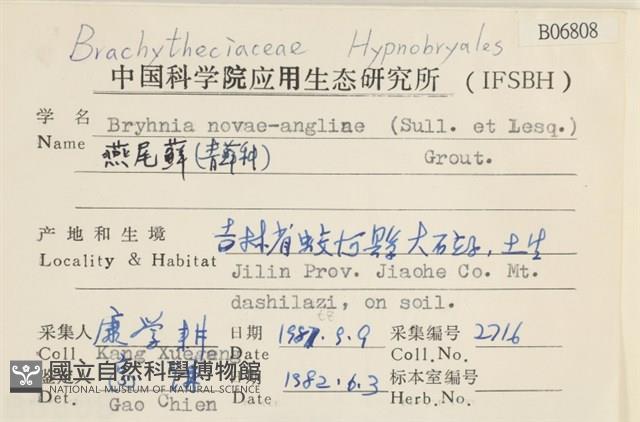 B06808
Brachytheciaceae Hypnobryales
中国科学院应用生态研究所 (IFSBH)
学名 Bryhnia novae-angliae (Sull. et Lesq.)
Name 燕尾藓(青藓科) Grout.
产地和生境 吉林省蛟河县大石砬子,土生
Locality & Habitat Jilin Prov. Jiaohe Co. Mt.
dashilazi, on soil.
采集人 康学耕 日期 1981.9.9 采集编号 2716
Coll. Kang Xuegeng Date Coll.No.
鉴定人 高谦 日期 1982.6.3 标本室编号
Det. Gao Chien Date Herb.No.
國立自然科學博物館
NATIONAL MUSEUM OF NATURAL SCIENCE